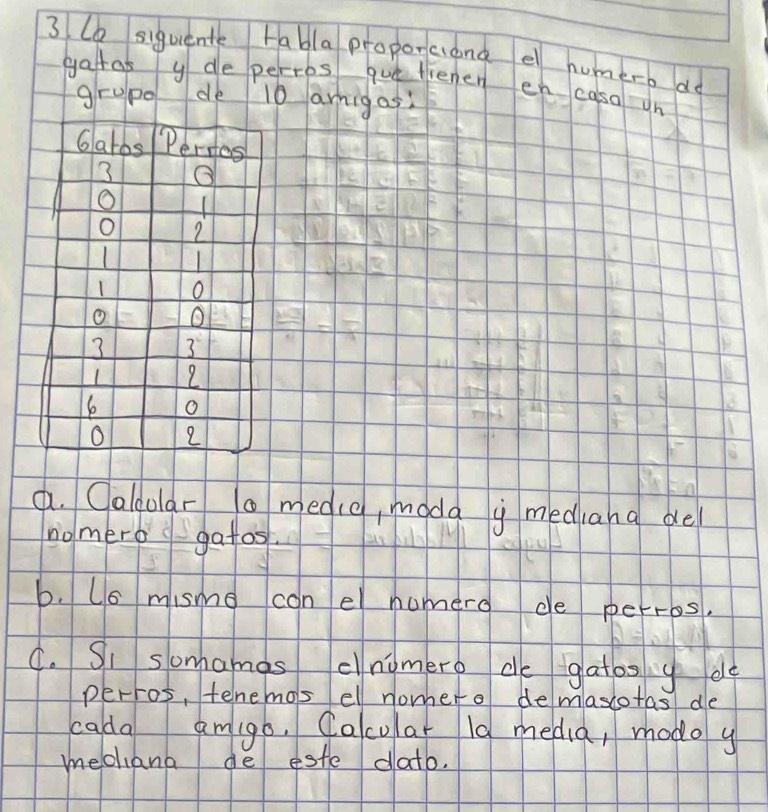 3. La siguiente tabla proporciona el numero de
gatos y de perros que tienen en casa un
grupo de 10 amigos:
Gatos Perros
3 0
0 1
0 2
1 1
1 0
0 0
3 3
1 2
6 0
0 2
a. Calcular la media, moda y mediana del
numero gatos.
b. Lo mismo con el numero de perros.
c. Si somamos el número de gatos y de
perros, tenemos el nomero de mascotas de
cada amigo. Calcular la media, modo y
mediana de este dato.